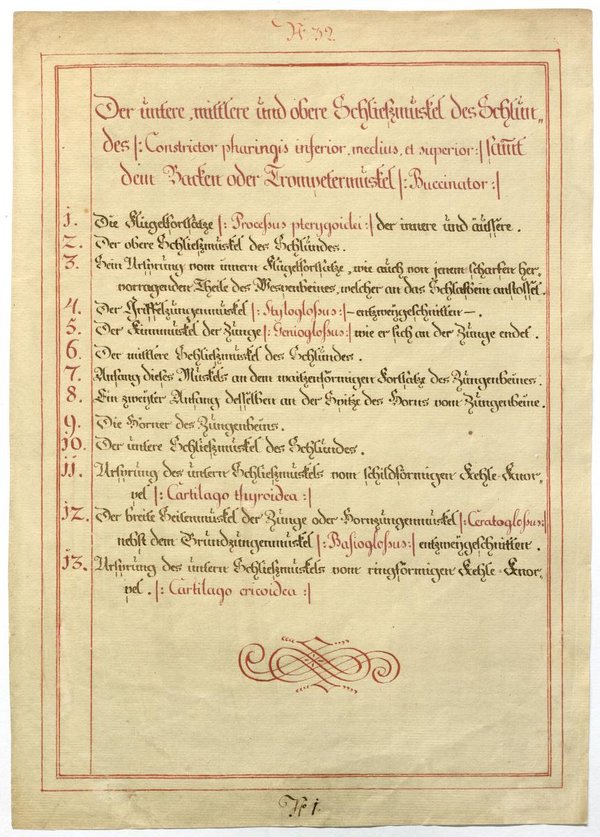 N. 32.
Der untere, mittlere und obere Schließmuskel des Schlun„
des |: Constrictor pharingis inferior, medius, et superior :| samt
dem Backen oder Trompetermuskel |: Buccinator :|
1. Die Flügelfortsätze |: Processus pterygoidei :| der innere und äussere.
2. Der obere Schließmuskel des Schlundes.
3. Sein Ursprung vom innern Flügelfortsatze, wie auch von jenem scharfen her„
vorragenden Theile des Wespenbeines, welcher an das Schlafbein anstosset.
4. Der Griffelzungenmuskel |: Styloglossus :| – entzweygeschnitten –.
5. Der Kinnmuskel der Zunge |: Genioglossus :| wie er sich an der Zunge endet.
6. Der mittlere Schließmuskel des Schlundes.
7. Anfang dieses Muskels an dem waitzenförmigen Fortsatze des Zungenbeines.
8. Ein zweyter Anfang desselben an der Spitze des Horns vom Zungenbeine.
9. Die Hörner des Zungenbeins.
10. Der untere Schließmuskel des Schlundes.
11. Ursprung des untern Schließmuskels vom schildförmigen Kehle-Knor„
pel |: Cartilago thyroidea :|
12. Der breite Seitenmuskel der Zunge oder Hornzungenmuskel |: Ceratoglossus :|
nebst dem Grundzungenmuskel |: Basioglossus :| entzweygeschnitten.
13. Ursprung des untern Schließmuskels vom ringförmigen Kehle-Knor„
pel. |: Cartilago cricoidea :|
N. 1.